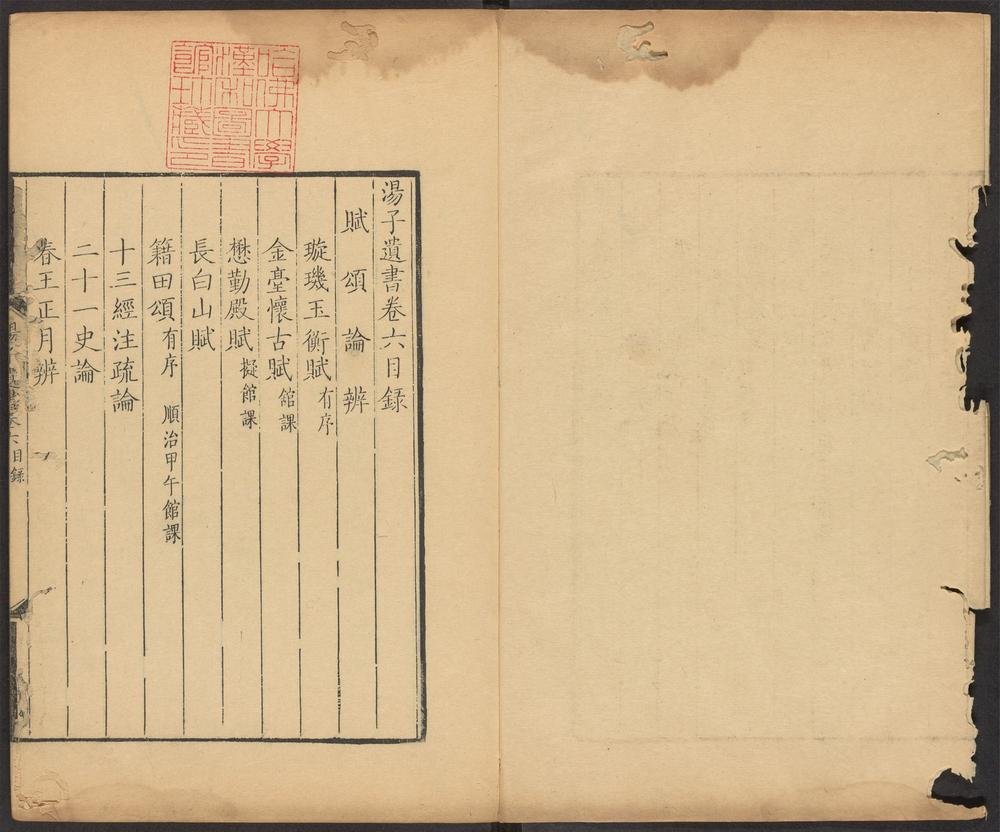 哈佛大學
漢和圖書
館珍藏印
湯子遺書卷六目錄
賦 頌 論 辨
璇璣玉衡賦有序
金臺懷古賦館課
懋勤殿賦擬館課
長白山賦
籍田頌有序 順治甲午館課
十三經注疏論
二十一史論
春王正月辨
卷六目錄